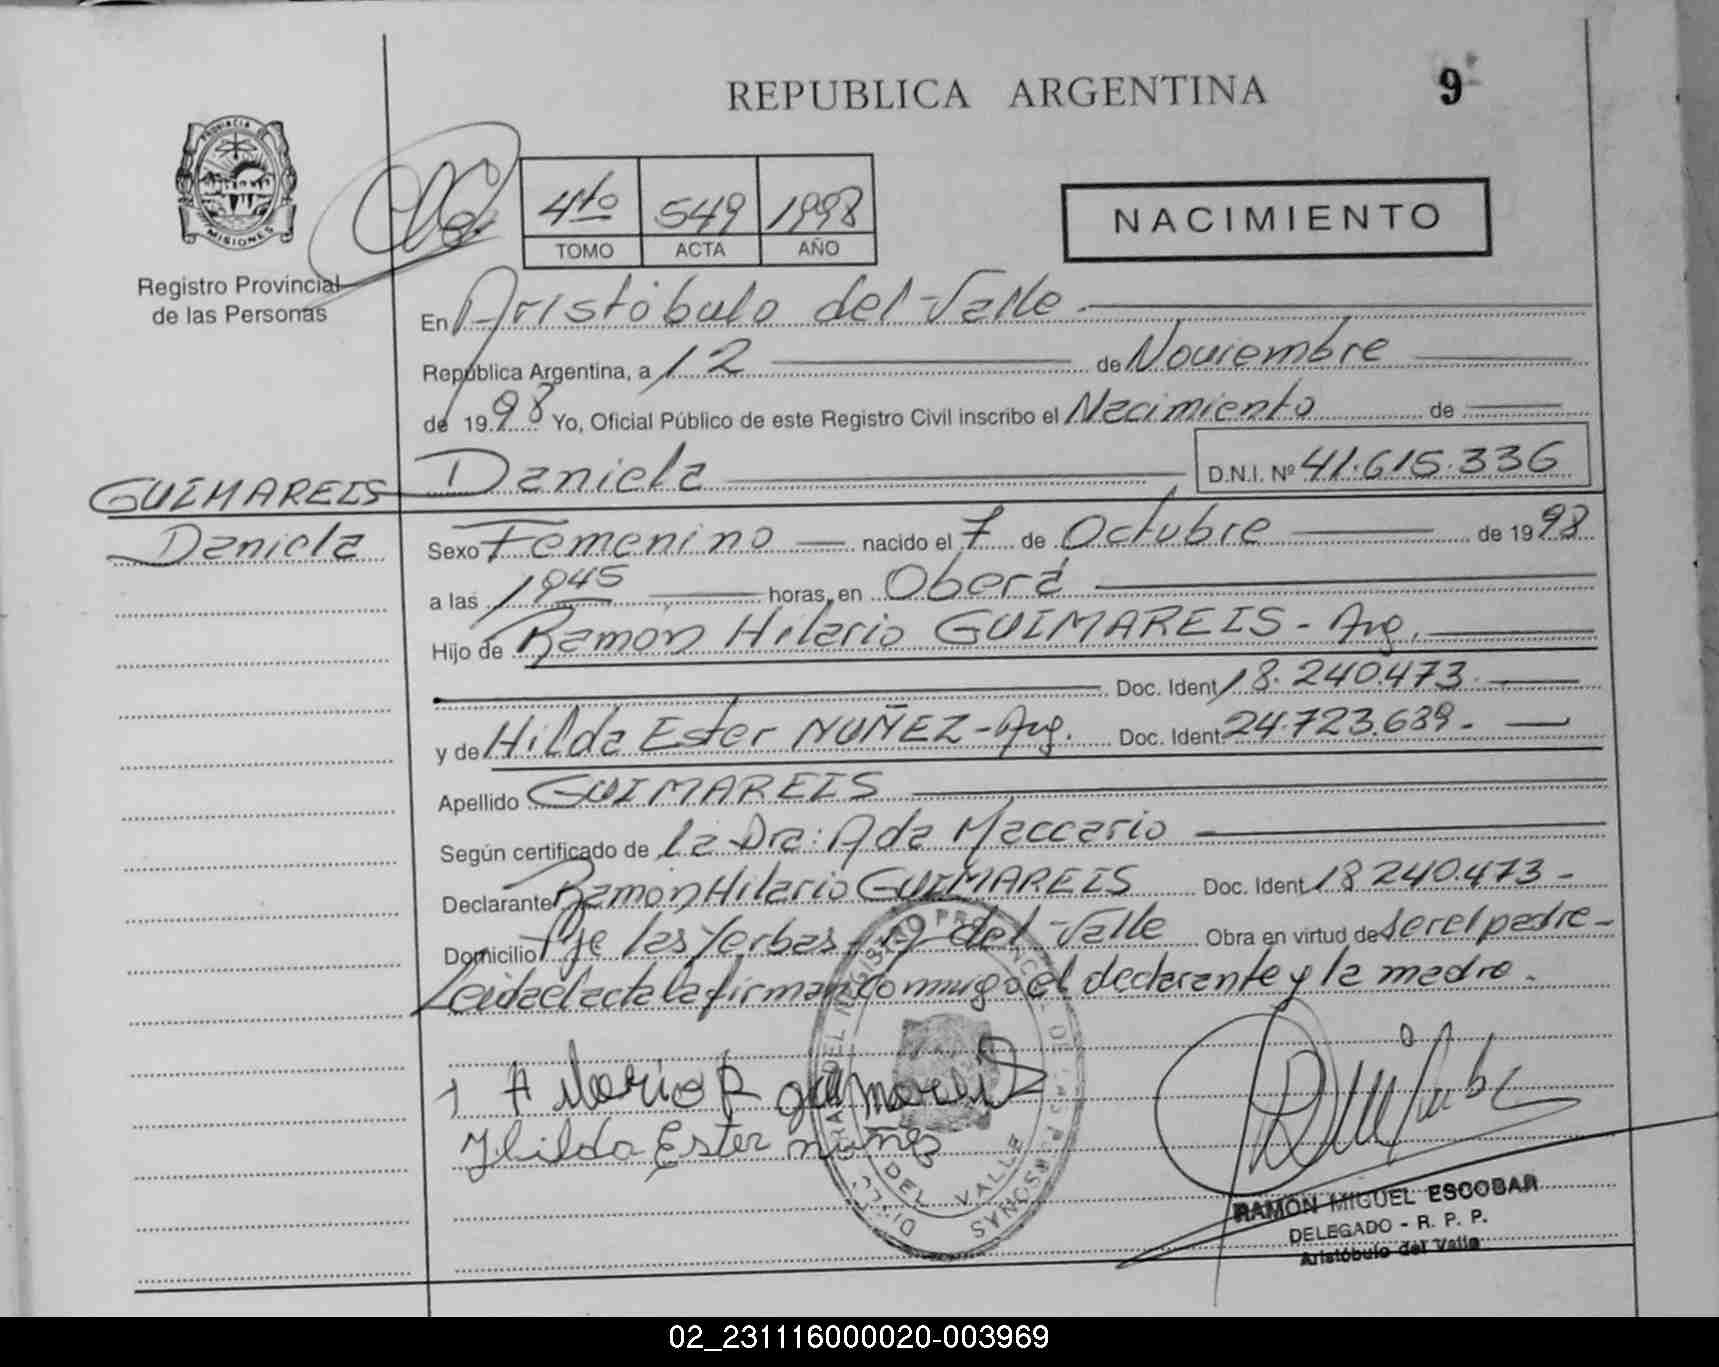 REPUBLICA ARGENTINA
9
PROVINCIA DE
MISIONES
Registro Provincial
de las Personas
4to 549 1998
TOMO ACTA AÑO
NACIMIENTO
En Aristóbulo del Valle
República Argentina, a 12 de Noviembre
de 1998 Yo, Oficial Público de este Registro Civil inscribo el Nacimiento de
GUIMAREIS
Daniela
Daniela D.N.I. Nº 41.615.336
Sexo Femenino nacido el 7 de Octubre de 1998
a las 1845 horas, en Oberá
Hijo de Ramón Hilario GUIMAREIS - Arg.
Doc. Ident. 18.240.473
y de Hilda Ester NUÑEZ - Arg. Doc. Ident. 24.723.639 -
Apellido GUIMAREIS
Según certificado de la Dra: Ada Maccario
Declarante Ramón Hilario GUIMAREIS Doc. Ident 18 240.473 -
Domicilio Pje las Yerbas - A del Valle Obra en virtud de ser el padre -
Leida el acta la firman conmigo el declarante y la madre.
Hilda Ester nuñez
DEL VALLE
RAMON MIGUEL ESCOBAR
DELEGADO - R. P. P.
Aristóbulo del Valle
02_231116000020-003969